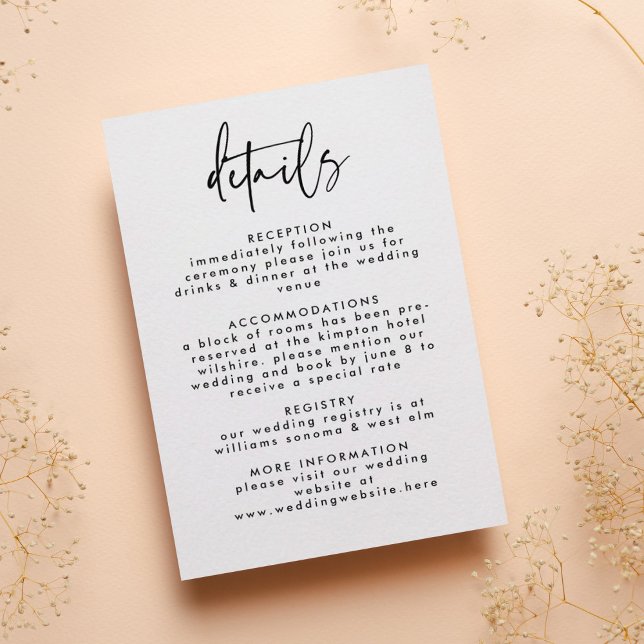 details
RECEPTION
immediately following the
ceremony please join us for
drinks & dinner at the wedding
venue
ACCOMMODATIONS
a block of rooms has been pre-
reserved at the kimpton hotel
wilshire. please mention our
wedding and book by june 8 to
receive a special rate
REGISTRY
our wedding registry is at
williams sonoma & west elm
MORE INFORMATION
please visit our wedding
website at
www.weddingwebsite.here